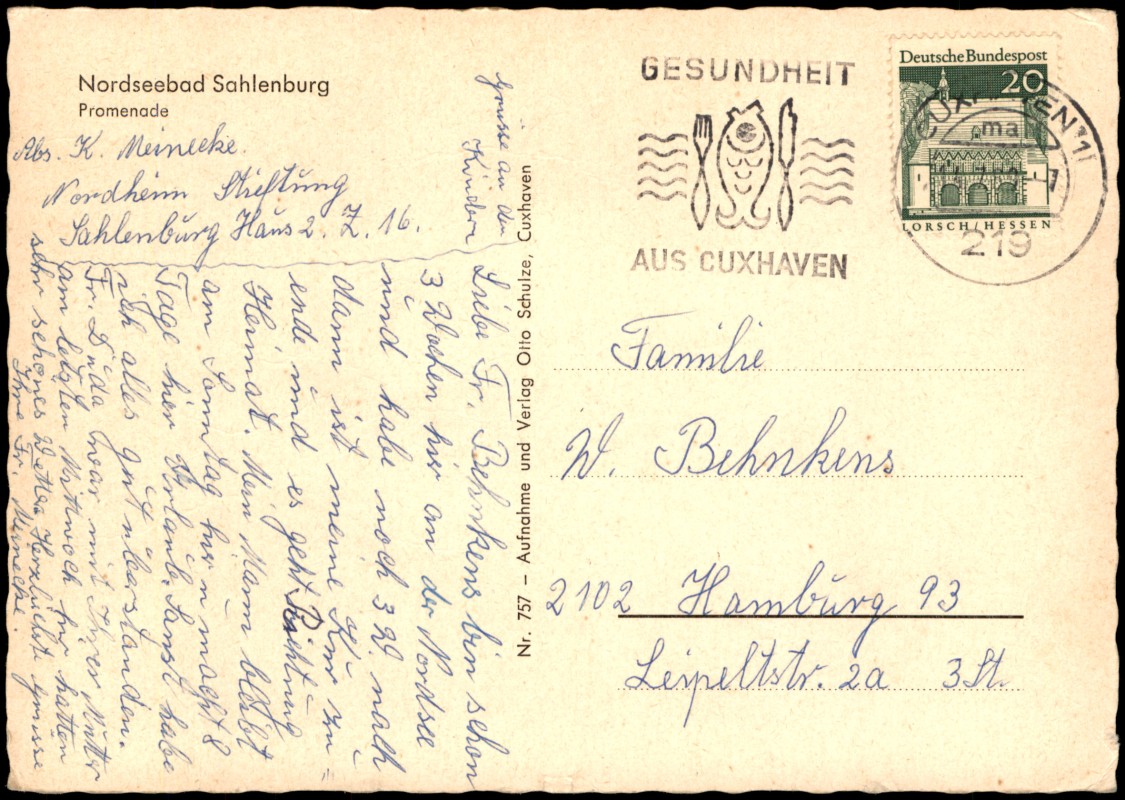 Nordseebad Sahlenburg
Promenade
Abs. K. Meinecke.
Nordheim Stieftung
Sahlenburg Haus 2. Z. 16.
Liebe Fr. Behnkens bin schon
3 Wochen hir an der Nordsee
und habe noch 3 W. nach
dann ist meine Kur zu
ende und es geht Richtung
Heimat. Mein Mann bleibt
am Sonntag hir n macht 8
Tage hier Urlaub. Sonst habe
ich alles gut überstanden.
Fr. Duda war mit Ihrer Mutter
am letzten Mittwoch hir hatten
sehr schönes Wetter Herzlichst Grüsse
Ihre Fr. Meinecke.
Grüsse an die
Kinder
Nr. 757 – Aufnahme und Verlag Otto Schulze, Cuxhaven
GESUNDHEIT
AUS CUXHAVEN
Deutsche Bundespost
20
LORSCH/HESSEN
CUXHAVEN 1
ma
219
Familie
W. Behnkens
2102 Hamburg 93
Leipeltstr. 2a 3St.